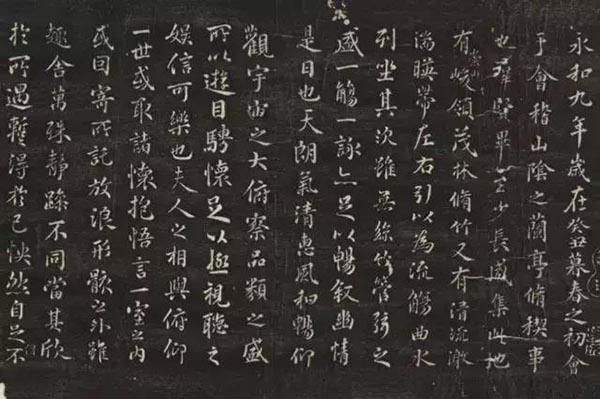 永和九年歲在癸丑暮春之初會
于會稽山陰之蘭亭脩稧事
也羣賢畢至少長咸集此地
有崇山峻領茂林脩竹又有清流激
湍暎帶左右引以為流觴曲水
列坐其次雖無絲竹管弦之
盛一觴一詠亦足以暢叙幽情
是日也天朗氣清惠風和暢仰
觀宇宙之大俯察品類之盛
所以遊目騁懷足以極視聽之
娛信可樂也夫人之相與俯仰
一世或取諸懷抱悟言一室之內
或因寄所託放浪形骸之外雖
趣舍萬殊靜躁不同當其欣
於所遇暫得於己怏然自足不